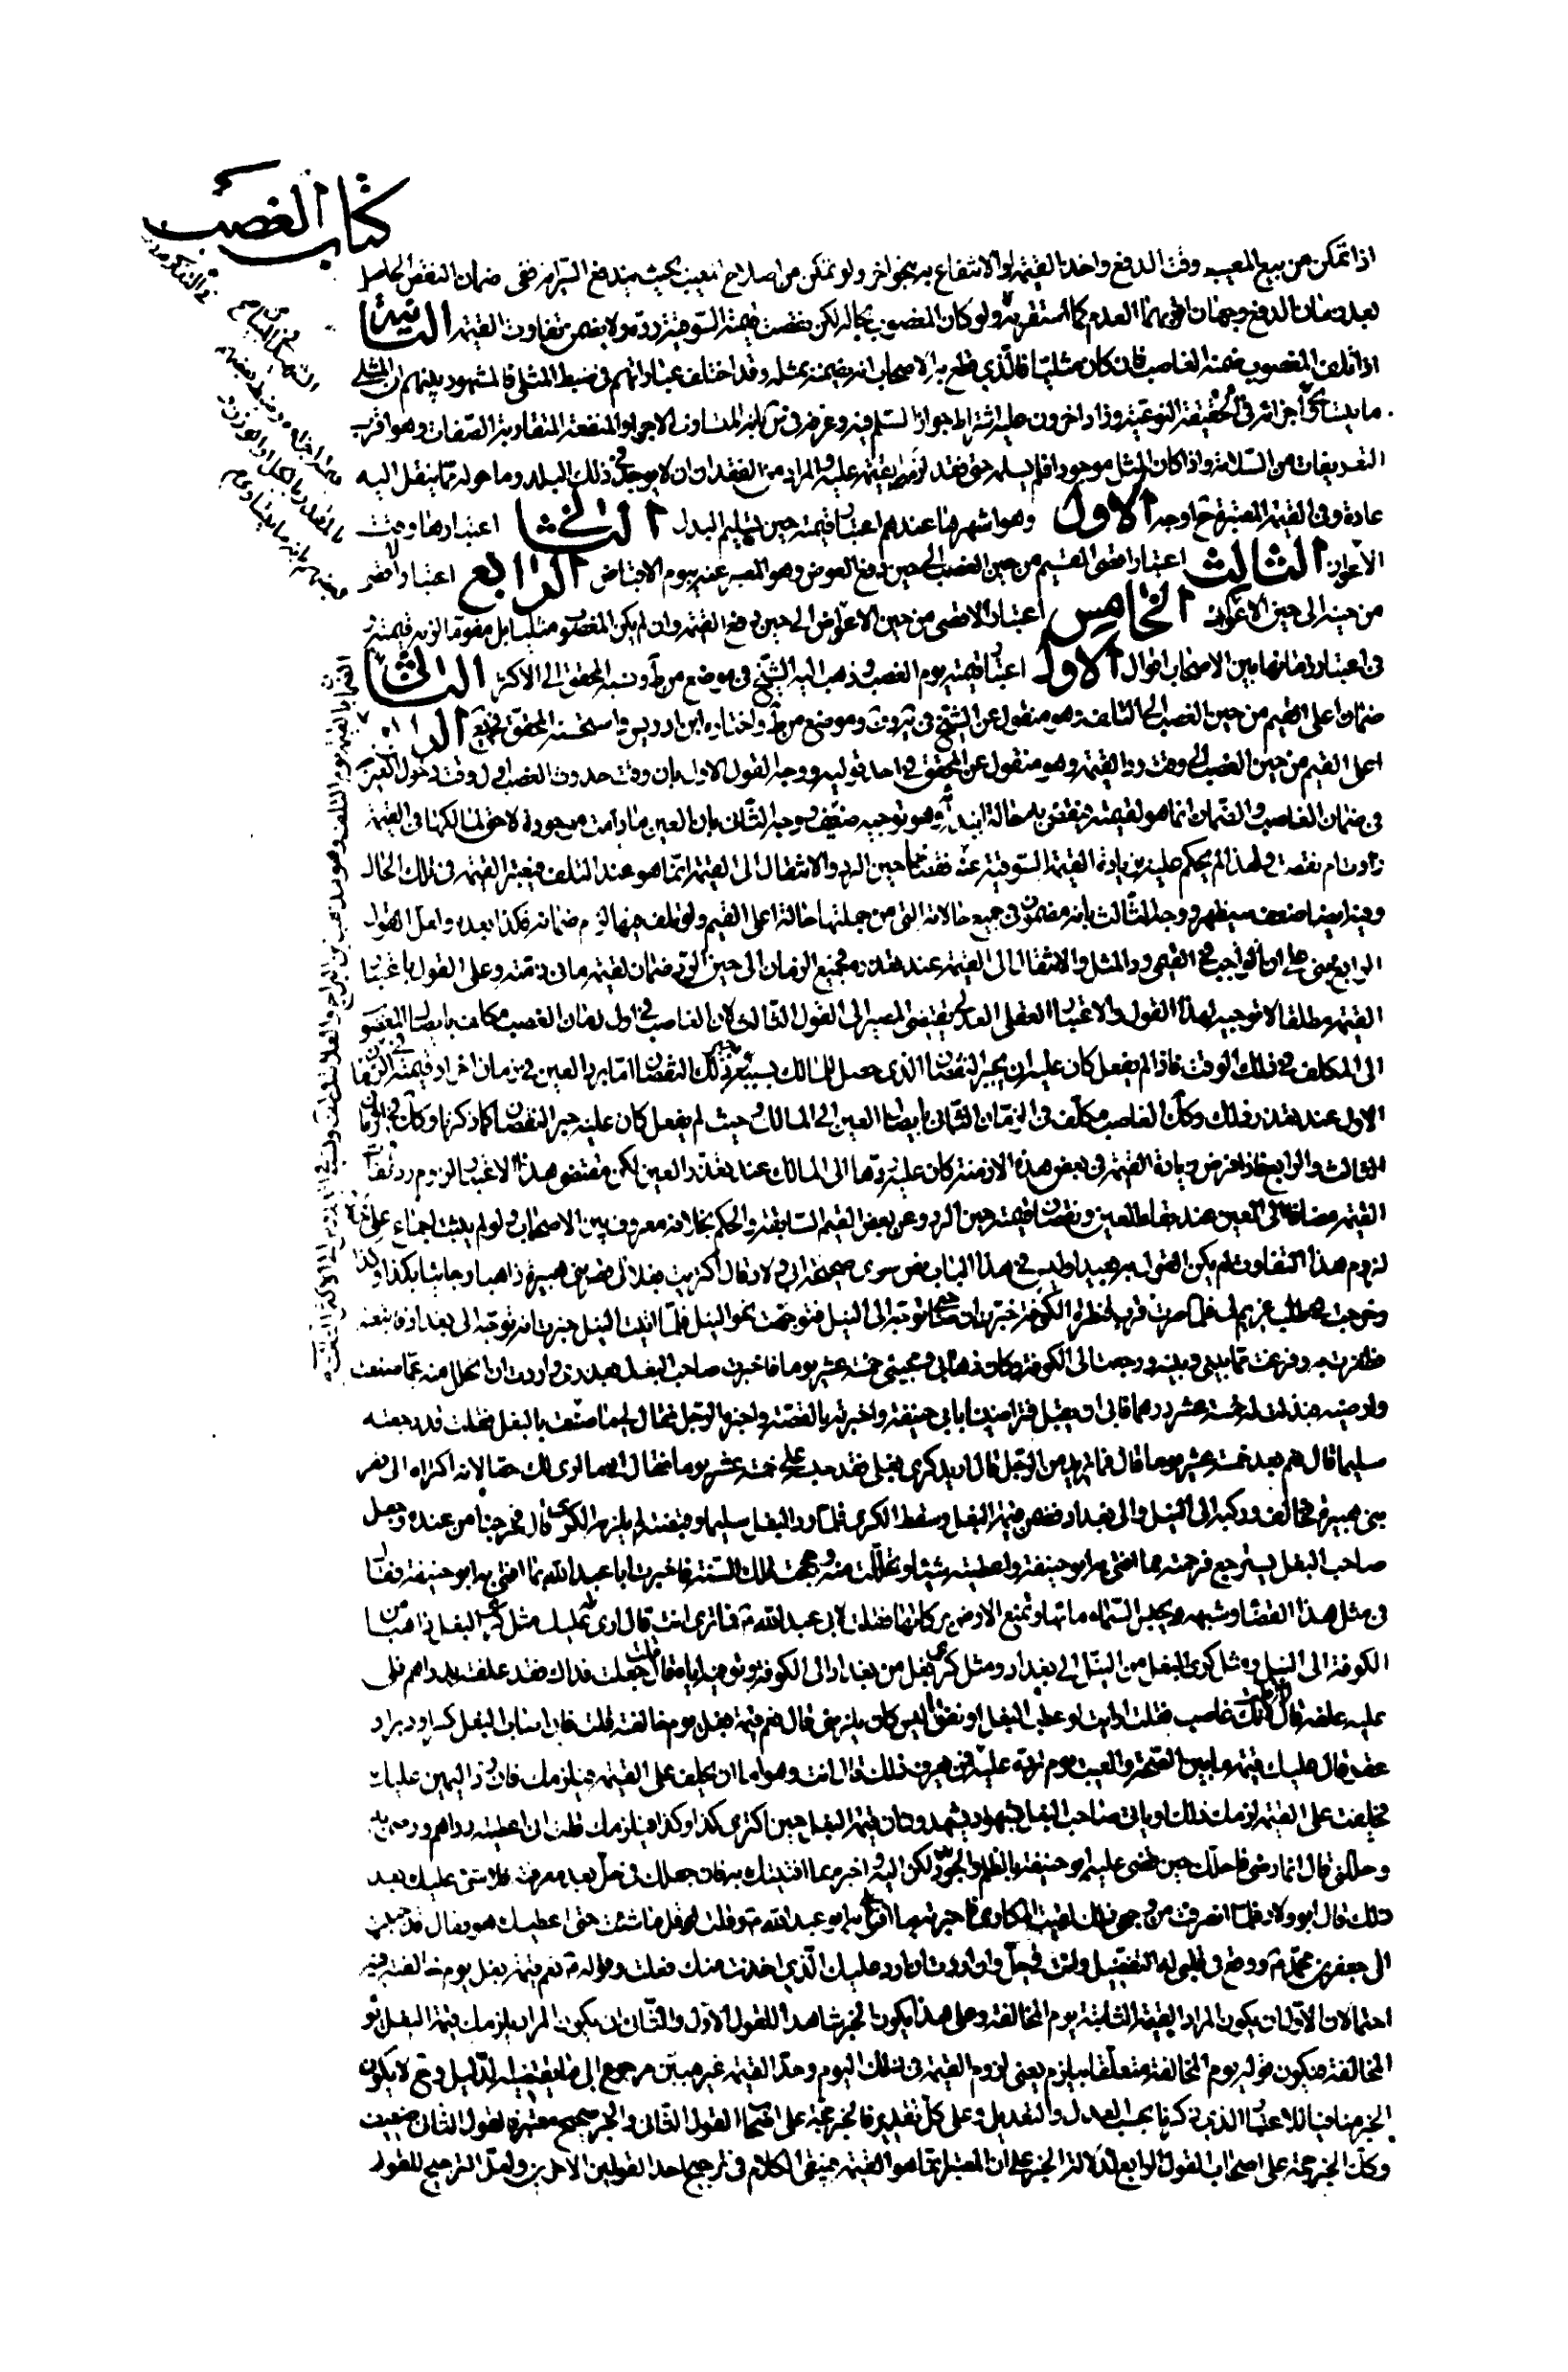 كتاب الغصب
اذا تمكن من بيع المعيب وقت الدفع واخذ القيمة او الانتفاع به بنحو اخر ولو تمكن من اصلاح المعيب بحيث يندفع السراية ففى ضمان النقص الحاصل
بعد زمان الدفع وجهان اقربهما العدم كما استقر به ولو كان المغصوب بحاله لكن نقصت قيمته السوقية رده ولا يضمن تفاوت القيمة الثانية
اذا تلف المغصوب ضمنه الغاصب فان كان مثليا فالذي قطع به الاصحاب انه يضمنه بمثله وقد اختلف عباراتهم فى ضبط المثلى فالمشهور بينهم ان المثلى
ما يتساوى اجزائه فى الحقيقة النوعية وزاد اخرون عليه اشتراط جواز السلم فيه وعرفه فى س بانه المتساوى الاجزاء والمنفعة المتقاربة الصفات وهو اقرب
التعريفات من السلامة واذا كان المثل موجودا فلم يسلمه حتى فقد لزمه قيمته عليه والمراد من الفقدان ان لا يوجد فى ذلك البلد وما حوله مما ينقل اليه
عادة وفى القيمة المعتبرة ح اوجه الاول وهو اشهرها عندهم اعتبار قيمته حين تسليم البدل الثانى اعتبارها وقت
الاعواز الثالث اعتبار اقصى القيم من حين الغصب الى حين دفع العوض وهو المعبر عنه بيوم الاقباض الرابع اعتبار الاقصى
من حينه الى حين الاعواز الخامس اعتبار الاقصى من حين الاعواز الى حين دفع القيمة وان لم يكن المغصوب مثليا بل متقوما لزمه قيمته و
فى اعتبار زمانها بين الاصحاب اقوال الاول اعتبار قيمته يوم الغصب وذهب اليه الشيخ فى موضع من ط ونسبه المحقق الى الاكثر الثالث
ضمان اعلى القيم من حين الغصب الى التلف وهو منقول عن الشيخ فى ية وف وموضع من ط واختاره ابن ادريس واستحسنه المحقق فى يع الرابع
اعلى القيم من حين الغصب الى وقت رد القيمة وهو منقول عن المحقق فى احد قوليه ووجه القول الاول بان وقت حدوث الغصب اول وقت دخول العين
فى ضمان الغاصب والضمان انما هو لقيمته فيقضى به حالة ابتدائه وهو توجيه ضعيف ووجه الثانى بان العين ما دامت موجودة لا حق للمالك فى القيمة
زادت ام نقصت ولهذا لم يحكم عليه بزيادة القيمة السوقية عند نقصانها حين الرد والانتقال الى القيمة انما هو عند التلف فيعتبر القيمة فى تلك الحال
وفيه ايضا ضعف سيظهر ووجه الثالث بانه مضمون فى جميع حالاته التى من جملتها حالة اعلى القيم ولو تلف فيها لزم ضمانه فكذا بعده ولعل القول
الرابع مبنى على ان الواجب فى القيمى رد المثل والانتقال الى القيمة عند تعذره فجميع الزمان الى حين الرد زمان ضمان لقيمة ما فى ذمته وعلى القول باعتبار
القيمة مطلقا لا توجيه لهذا القول والاعتبار العقلى العدلى يقتضى المصير الى القول الثالث لان الغاصب فى اول زمان الغصب مكلف بايصال المغصوب
الى المكلف فى ذلك الوقت فاذا لم يفعل كان عليه ان يجبر النقصان الذى حصل للمالك بسببه وجبر ذلك النقصان اما برد العين فى زمان اخر او قيمته فى الزمان
الاول عند تعذر ذلك وكان الغاصب مكلف فى الزمان الثانى بايصال العين الى المالك وحيث لم يفعل كان عليه جبر النقصان كما ذكرنا وكذا فى الزمان
الثالث والرابع فاذا فرض زيادة القيمة فى بعض هذه الازمنة كان عليه ردها الى المالك عند تعذر العين لكن مقتضى هذا الاعتبار لزوم رد تفاوت
القيمة مضافا الى العين عند بقاء العين ونقصان قيمته حين الرد وعن بعض القيم السابقة والحكم بخلافه معروف بين الاصحاب ولو لم يثبت اجماع على عدم
لزوم هذا التفاوت لم يكن القول به بعيدا وليس فى هذا الباب نص سوى صحيحة ابى ولاد قال اكتريت بغلا الى قصر ابن هبيرة ذاهبا وجائيا بكذا وكذا
وخرجت فى طلب غريم لى فلما صرت قرب قنطرة الكوفة خبرت ان صاحبى توجه الى النيل فتوجهت نحو النيل فلما اتيت النيل خبرت انه توجه الى بغداد فاتبعته
فظفرت به وفرغت مما بينى وبينه ورجعت الى الكوفة وكان ذهابى ومجيئى خمسة عشر يوما فاخبرت صاحب البغل بعذرى واردت ان اتحلل منه مما صنعت
وارضيه فبذلت له خمسة عشر درهما فابى ان يقبل فتراضينا بابى حنيفة واخبرته بالقصة واخبره الرجل فقال لى ما صنعت بالبغل فقلت قد رجعته
سليما قال نعم بعد خمسة عشر يوما قال فما تريد من الرجل قال اريد كرى بغلى فقد حبسه على خمسة عشر يوما فقال انى ما ارى لك حقا لانه اكتراه الى قصر
بنى هبيرة فخالف وركبه الى النيل والى بغداد فضمن قيمة البغل وسقط الكرى فلما رد البغل سليما وقبضته لم يلزمه الكرى قال فخرجنا من عنده وجعل
صاحب البغل يسترجع فرحمته مما افتى به ابو حنيفة واعطيته شيئا وتحللت منه وحججت تلك السنة فاخبرت ابا عبد الله بما افتى به ابو حنيفة فقال
فى مثل هذا القضاء وشبهه تحبس السماء ماءها وتمنع الارض بركاتها فقلت لابى عبد الله ع فما ترى انت قال ارى له عليك مثل كرى البغل ذاهبا من
الكوفة الى النيل ومثل كرى البغل من النيل الى بغداد ومثل كرى بغل من بغداد الى الكوفة وتوفيه اياه قال قلت جعلت فداك فقد علفته بدراهم فلى
عليه علفه قال لا لانك غاصب فقلت ارايت لو عطب البغل او نفق اليس كان يلزمنى قال نعم قيمة بغل يوم خالفته قلت فان اصاب البغل كسر او دبر او
عقر فقال عليك قيمة ما بين الصحة والعيب يوم ترده عليه قلت فمن يعرف ذلك قال انت وهو اما ان يحلف على القيمة فيلزمك فان رد اليمين عليك
فحلفت على القيمة لزمك ذلك او ياتى صاحب البغل بشهود يشهدون ان قيمة البغل حين اكترى كذا وكذا فيلزمك قلت انى اعطيته دراهم ورضى بها
وحللنى قال انما رضى فاحلك حين قضى عليه ابو حنيفة بالظلم والجور ولكن ارجع اليه واخبره بما افتيتك به فان جعلك فى حل بعد معرفته فلا شئ عليك بعد
ذلك قال ابو ولاد فلما انصرفت من وجهى ذلك لقيت المكارى فاخبرته بما افتانى به ابو عبد الله ع وقلت له قل ما شئت حتى اعطيك هو فقال قد حببت
الى جعفر بن محمد ع ووقع فى قلبى له التفضيل وانت فى حل وان اردت ان ارد عليك الذى اخذت منك فعلت وقوله ع نعم قيمة بغل يوم خالفته فيه
احتمالان الاول ان يكون المراد القيمة الثابتة يوم المخالفة وعلى هذا يكون الخبر شاهدا للقول الاول والثانى ان يكون المراد يلزمك قيمة البغل يوم
المخالفة فيكون قوله يوم المخالفة متعلقا بيلزم يعنى لزوم القيمة فى ذلك اليوم وحد القيمة غير مبين مرجوع الى ما يقتضيه الدليل وح لا يكون
الخبر منافيا للاعتبار الذى ذكرنا بحسب العدل والتعديل وعلى كل تقدير فالخبر حجة على اصحاب القول الثانى والخبر صحيح معتبر فالقول الثانى ضعيف
وكان الخبر حجة على اصحاب القول الرابع لدلالة الخبر على ان المعتبر انما هو القيمة فبقى الكلام فى ترجيح احد القولين الاخرين ولعل الترجيح للقول